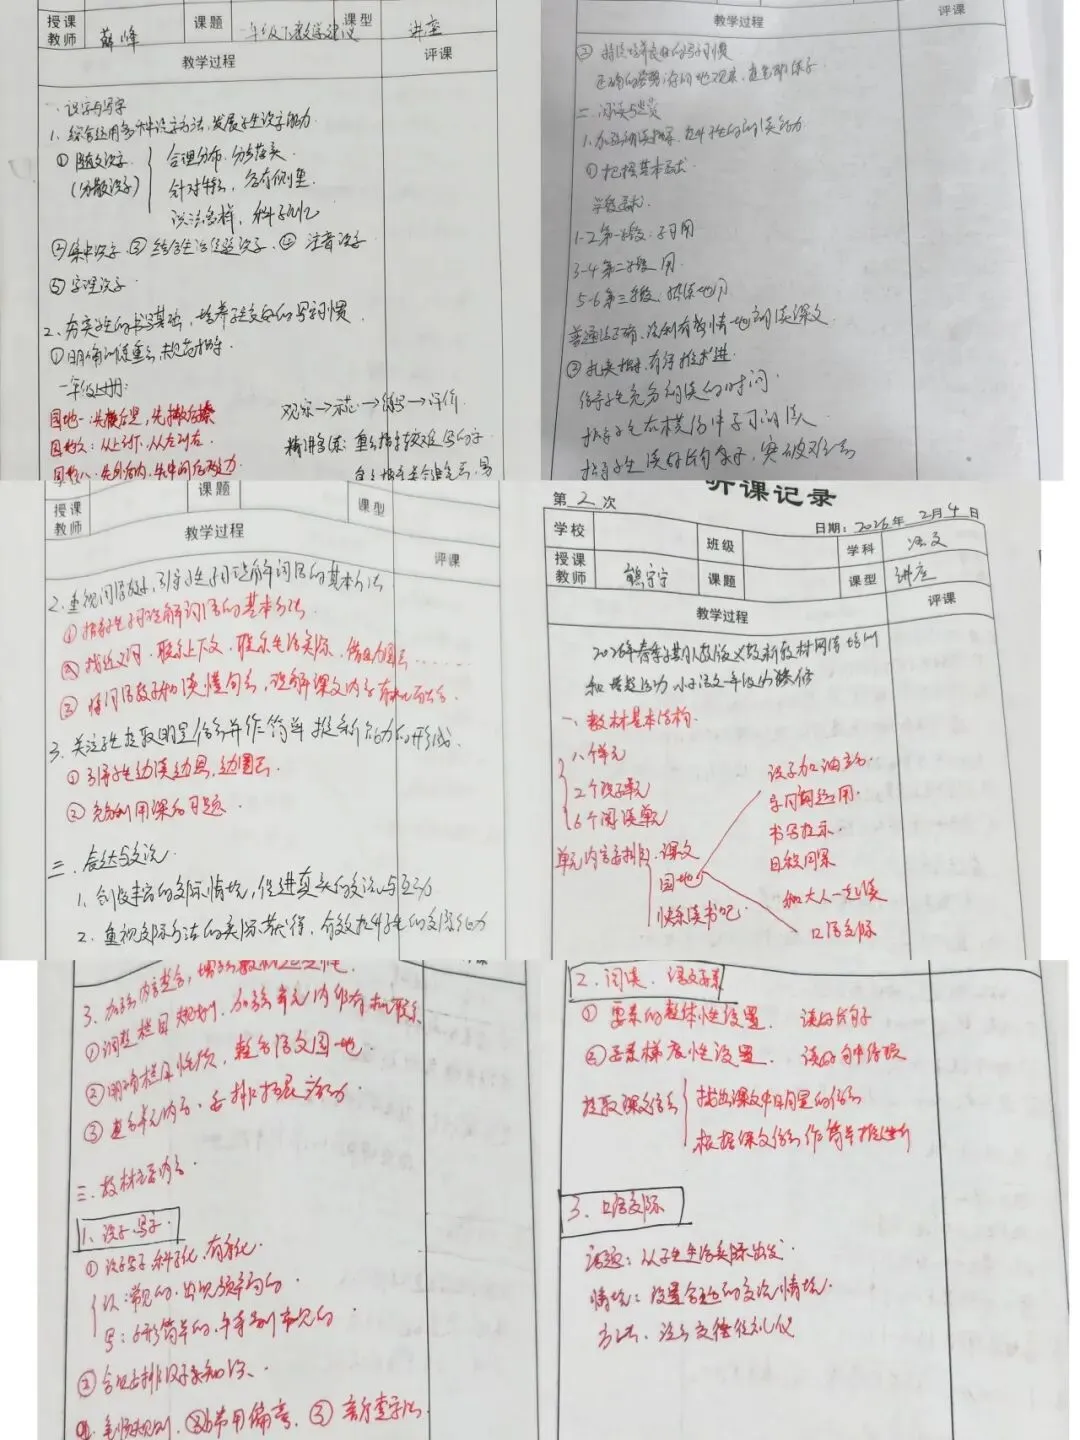 授课教师 薛峰 课题 一年级下教学建议 课型 讲座
教学过程 评课
一、识字与写字
1. 综合运用多种识字方法,发展学生识字能力
① 随文识字 合理分布,分步落实
(分散识字) 针对特点,各有侧重
识法多样,科学记忆
②集中识字 ③ 结合生活经验识字 ④ 注音识字
⑤ 字理识字
2. 夯实学生的书写基础,培养学生良好的写字习惯
①明确训练重点,规范指导
一年级上册:
园地一:先横后竖,先撇后捺
园地 :从上到下,从左到右
园地八:先外后内,先中间后两边
观察→示范→ →评价
精讲多练:重点指导较难写的字
教学过程 评课
② 持续培养良好的写字习惯
二、阅读与
1. 加强朗读指导,提升学生的朗读能力
① 把握基本要求
学段要求:
1-2第一学段:学习用
3-4第二学段 用
5-6第三学段
普通话正确、流利有感情地朗读课文
② 扎实指导,有序推进
给学生充分朗读的时间
指导学生在模仿中学习朗读
指导学生读好长句子,突破难点
授课教师 课题 课型
教学过程 评课
2. 重视词语教学,引导学生学习理解词语的基本方法
① 指导学生学习理解词语的基本方法
② 找近义词、联系上下文、联系生活实际、借助图画……
③ 将词语教学和读懂句子,理解课文内容有机结合
3. 关注学生提取明显信息并作简单推断能力的形成
① 引导学生边读边思,边圈画
② 充分利用课后习题
三、表达与交流
1. 创设丰富的交际情境,促进真实的交流与互动
2. 重视交际方法的实际获得,有效提升学生的交际能力
听课记录
第2次 日期:2026年2月4日
学校 班级 学科 语文
授课教师 熊宁宁 课题 课型 讲座
教学过程 评课
2026年春季学期人教版义教新教材网络培训
和 活动 小学语文一年级 研修
一、教材基本结构
八个单元
2个识字单元
6个阅读单元
单元内容编排 课文
园地
快乐读书吧
识字加油站
字词句运用
书写提示
日积月累
和大人一起读
口语交际
3. 加强内容整合,增强教材适宜性
①调整栏目规划,加强单元内部有机联系
②明确栏目性质,整合语文园地
③ 整合单元内容,安排拓展活动
三、教材主要内容
1、识字、写字
① 识字写字科学化、有序化
认:常见的、出现频率高的
写:字形简单的、 常见的
② 合理安排汉字知识
笔顺规则、 常用偏旁、③ 音序查字法
2. 阅读、语文要素
① 要素的整体性设置 读好句子
② 要素梯度性设置 读好句中停顿
提取课文信息 找出课文中明显的信息
根据课文信息作简单推断
3、口语交际
话题:从学生生活实际出发
情境:设置合适的交流情境
方法:注重交际礼仪